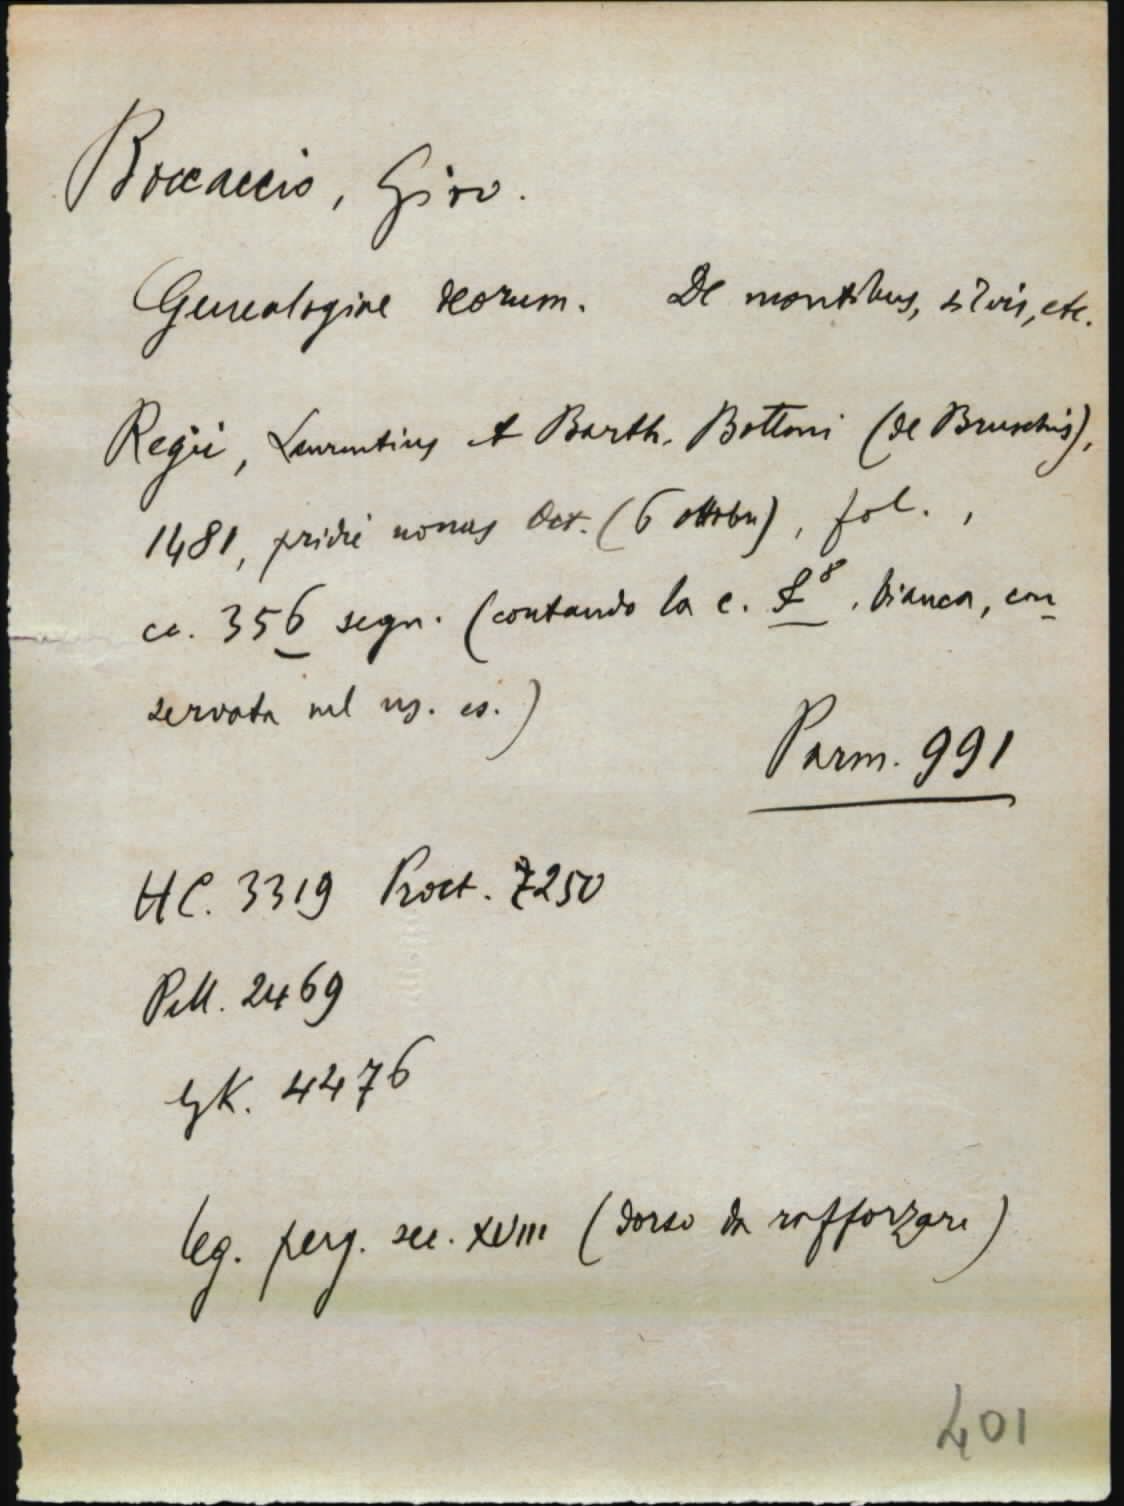 Boccaccio, Giov.
Genealogiae deorum. De montibus, silvis, etc.
Regii, Laurentius et Barth. Bottoni (de Bruschis),
1481, pridie nonas Oct. (6 ottobre), fol. ,
cc. 356 segn. (contando la c. 8 bianca, con
servata nel ns. es.)
Parm. 991
HC. 3319 Proct. 7250
Pell. 2469
GK. 4476
leg. perg. sec. XVIII (dorso da rafforzare)
401